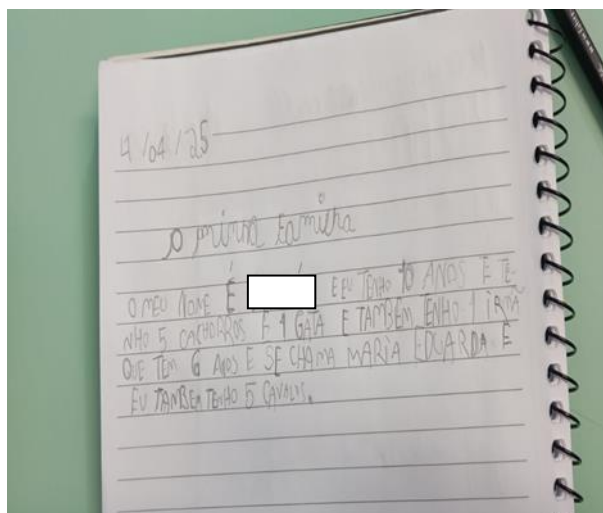 4/04/25
O minha familha
O MEU NOME É E EU TENHO 10 ANOS E TE-
NHO 5 CACHORROS E 1 GATA E TAMBÉM TENHO 1 IRMÃ
QUE TEM 6 ANOS E SE CHAMA MARIA EDUARDA E
EU TANBEM TENHO 5 CAVALOS.